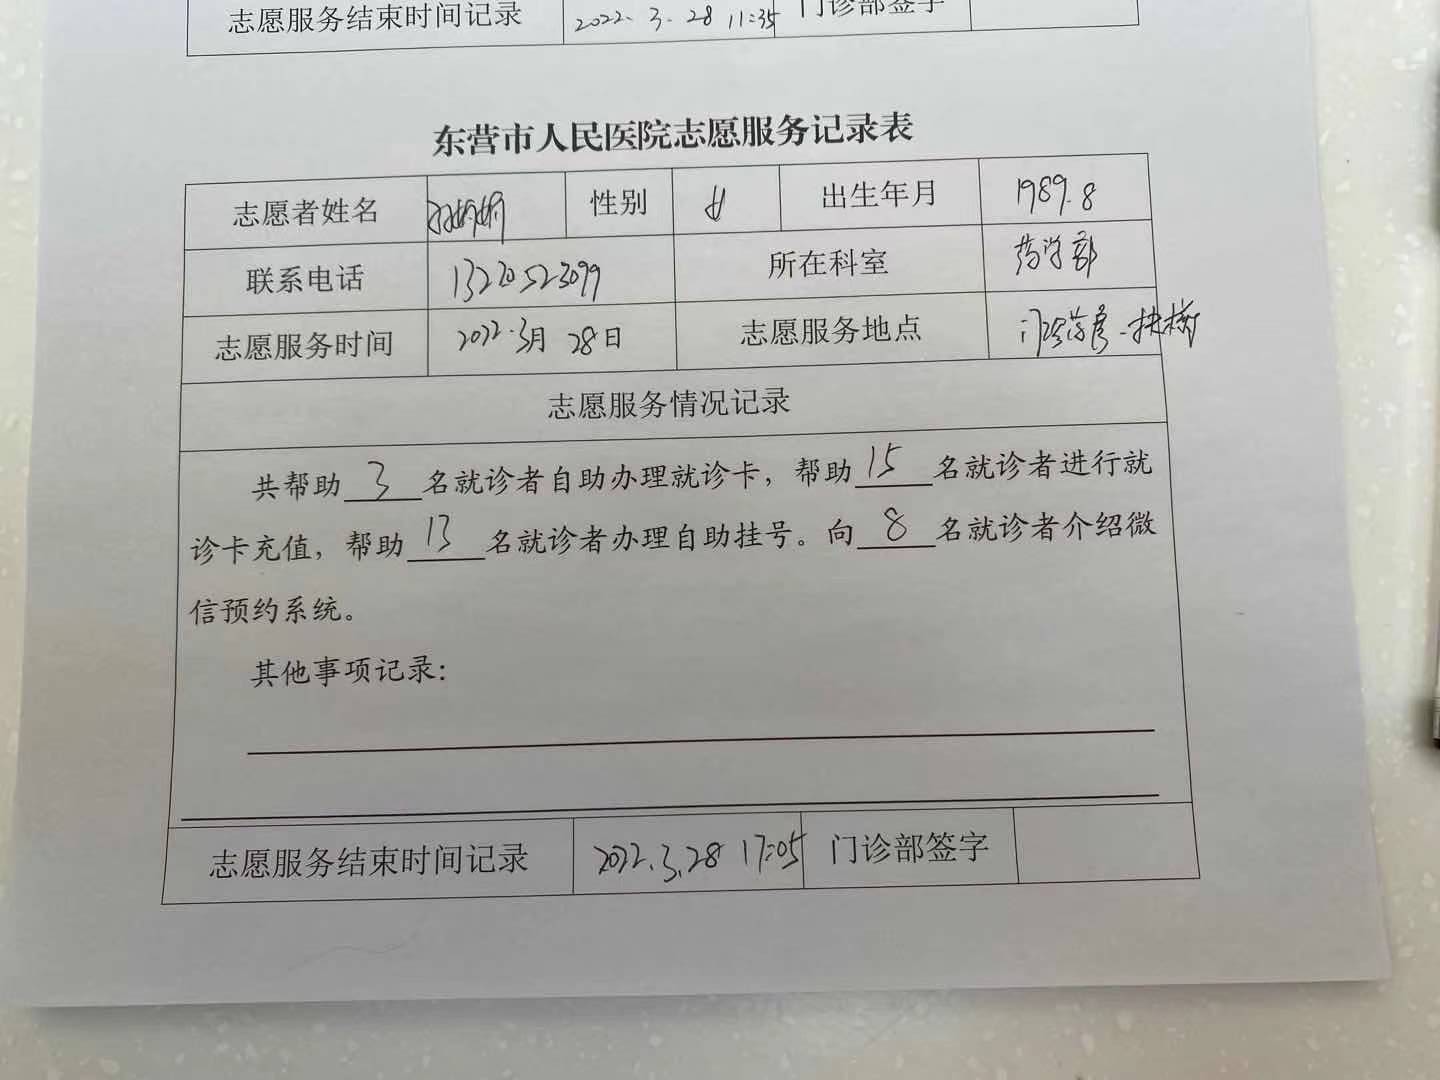 志愿服务结束时间记录 2022.3.28 11:35 门诊部签字
东营市人民医院志愿服务记录表
志愿者姓名 性别 女 出生年月 1989.8
联系电话 13220523099 所在科室 药学部
志愿服务时间 2022.3月28日 志愿服务地点 门诊药房-扶梯
志愿服务情况记录
共帮助3名就诊者自助办理就诊卡，帮助15名就诊者进行就
诊卡充值，帮助13名就诊者办理自助挂号。向8名就诊者介绍微
信预约系统。
其他事项记录：
志愿服务结束时间记录 2022.3.28 17:05 门诊部签字